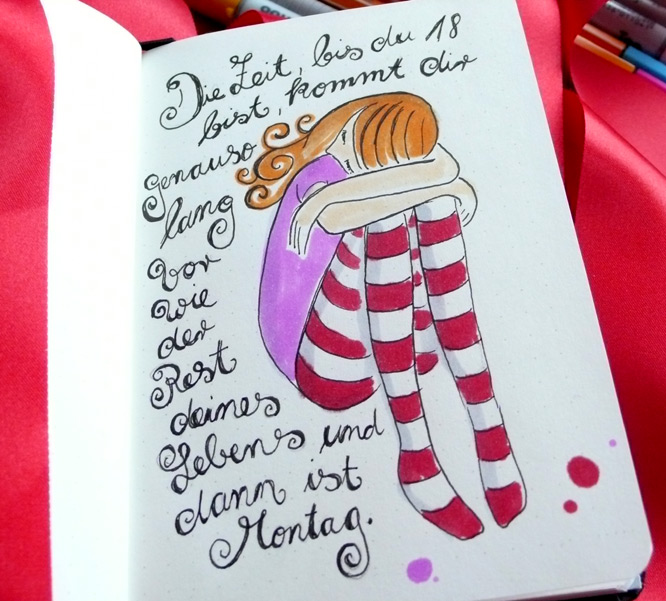 Die Zeit, bis du 18
bist, kommt dir
genauso
lang
vor
wie
der
Rest
deines
Lebens und
dann ist
Montag.